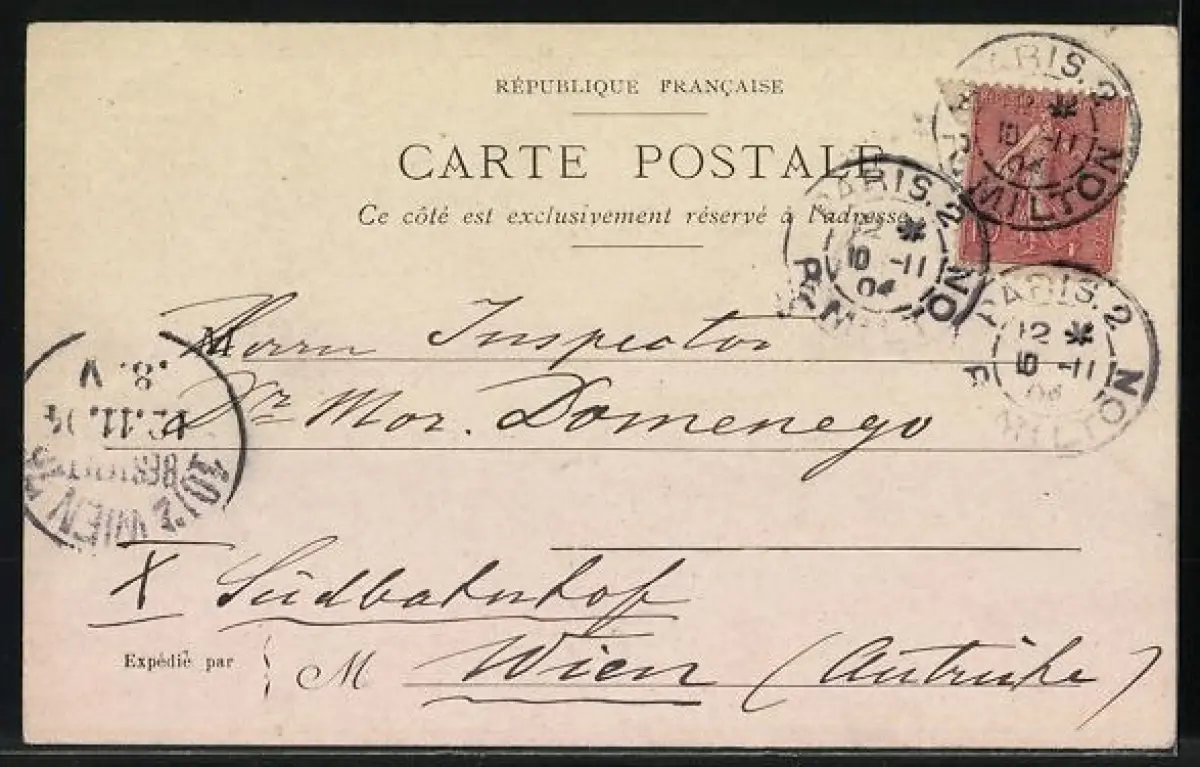 RÉPUBLIQUE FRANÇAISE
CARTE POSTALE
Ce côté est exclusivement réservé à l'adresse.
PARIS. 2
12 *
10 -11
04
R. MILTON
PARIS. 2
12 *
10 -11
04
R. MILTON
PARIS. 2
12 *
-11
04
R. MILTON
10
M
Herrn Inspector
Dr. Mor. Domenego
10/2 WIEN
BESTELLT
.11.04
.8. V
X Südbahnhof
Expédié par M
Wien (Autriche)